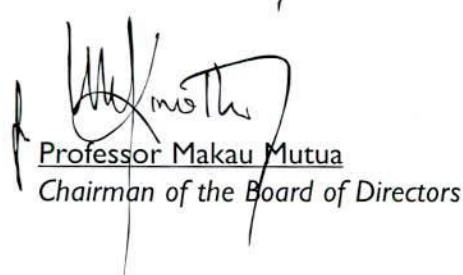 Professor Makau Mutua
Chairman of the Board of Directors